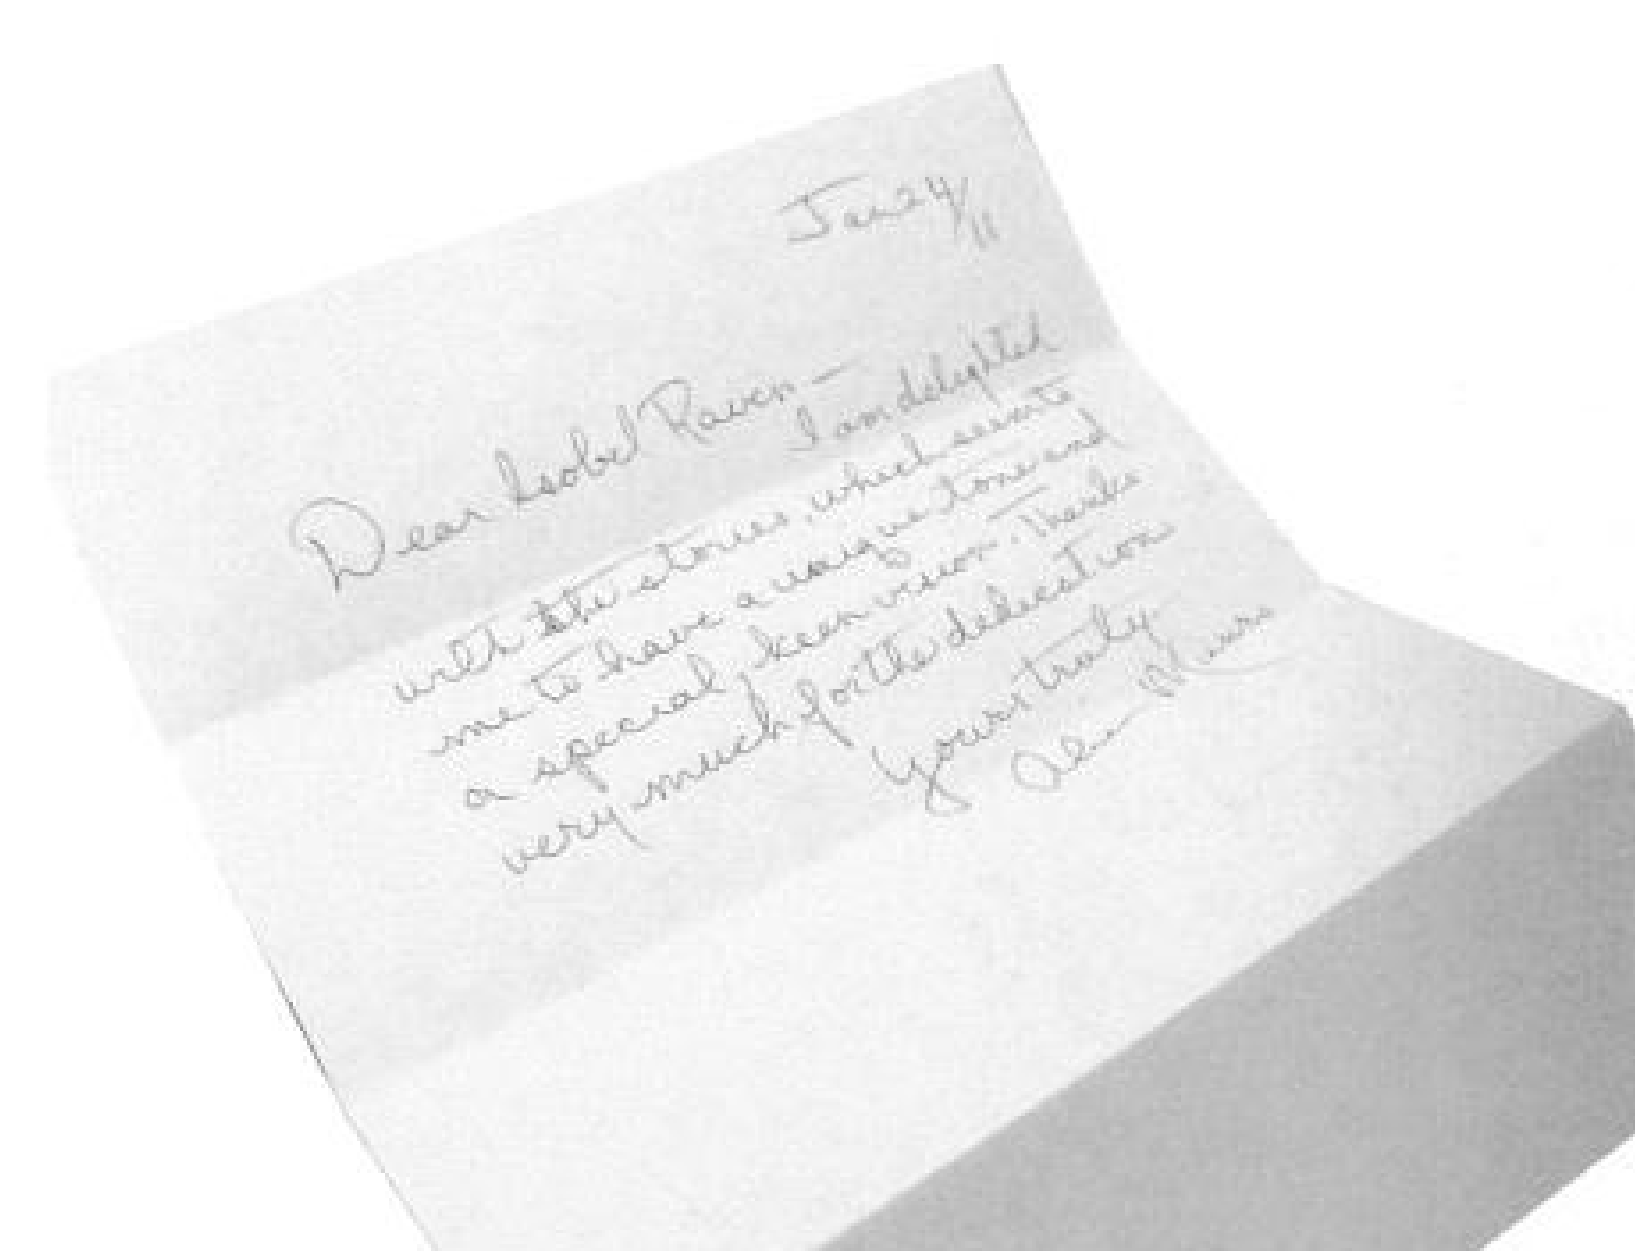 Jan 24/11
Dear Isobel Raven —
I am delighted
with the stories, which seem to
me to have a unique tone and
a special, keen vision. Thanks
very much for the dedication
Yours truly,
Alice Munro